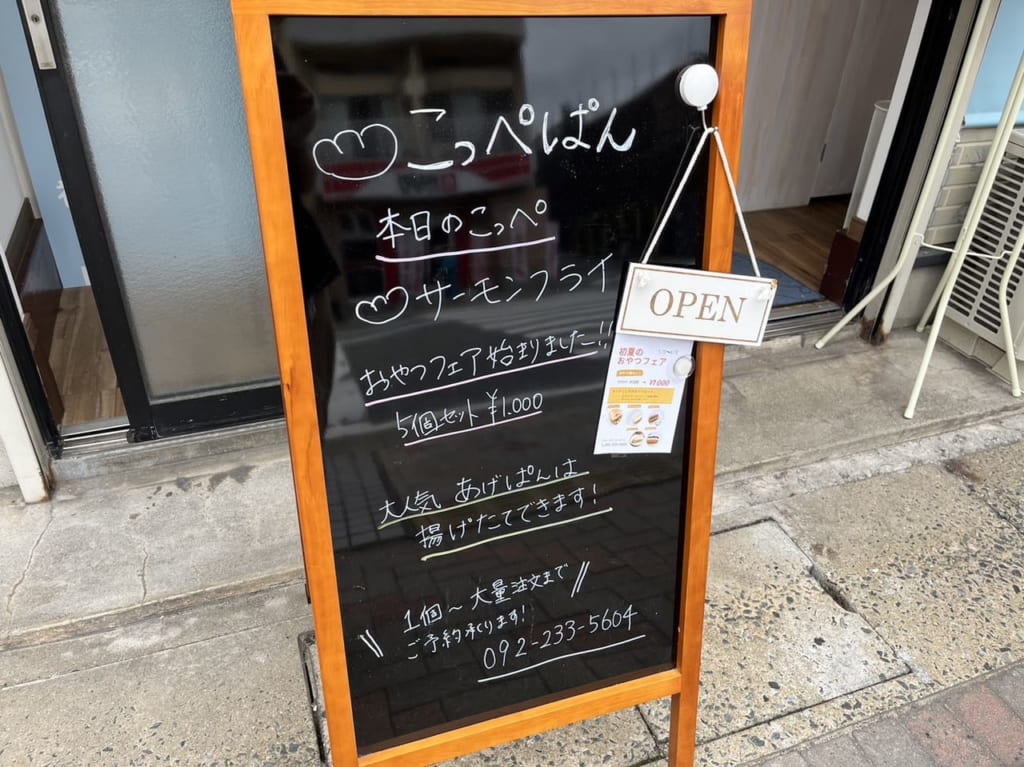 こっぺぱん
本日のこっペ
サーモンフライ
おやつフェア始まりました!!
5個セット ¥1.000
大人気 あげぱんは
揚げたてできます!
1個~大量注文まで
ご予約承ります!
092-233-5604
OPEN
初夏の
おやつフェア
¥1000